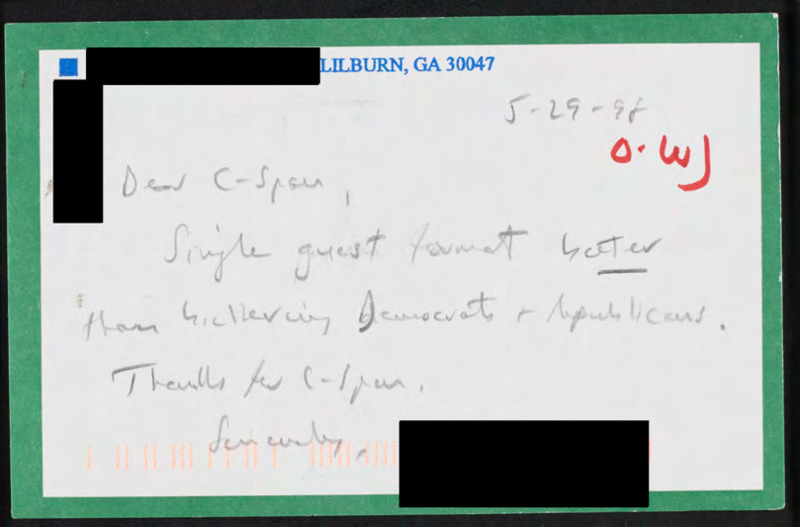 LILBURN, GA 30047
5-29-98
O. WJ
Dear C-Span,
Single guest format better
than bickering Democrats + Republicans.
Thanks for C-Span.
Sincerely,